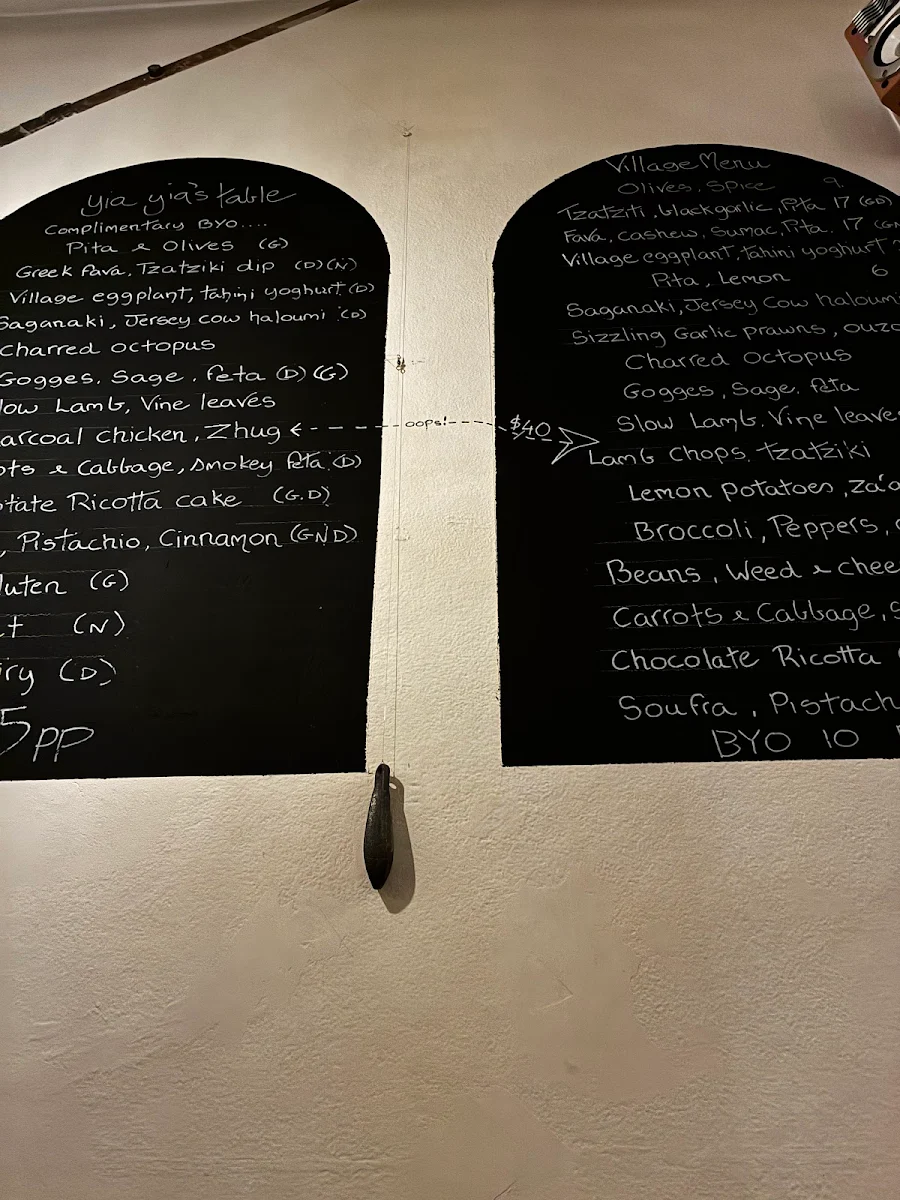 yia yia's table
Complimentary BYO....
Pita & Olives (G)
Greek fava, Tzatziki dip (D)(N)
Village eggplant, tahini yoghurt (D)
Saganaki, Jersey cow haloumi (D)
Charred octopus
Gogges, Sage, feta (D)(G)
low Lamb, Vine leaves
arcoal chicken, Zhug
ots & Cabbage, smokey feta (D)
olate Ricotta cake (G.D)
, Pistachio, Cinnamon (GND)
luten (G)
t (N)
iry (D)
5pp
oops!
$40
Village Menu
Olives, Spice 9.
Tzatziti, blackgarlic, Pita 17 (GD)
Fava, cashew, Sumac, Pita. 17 (GN
Village eggplant, tahini yoghurt
Pita, Lemon 6
Saganaki, Jersey Cow haloumi
Sizzling Garlic prawns, ouzo
Charred Octopus
Gogges, Sage, feta
Slow Lamb, Vine leaves
Lamb Chops, tzatziki
Lemon potatoes, za'a
Broccoli, Peppers,
Beans, Weed & chee
Carrots & Cabbage, s
Chocolate Ricotta
Soufra, Pistach
BYO 10